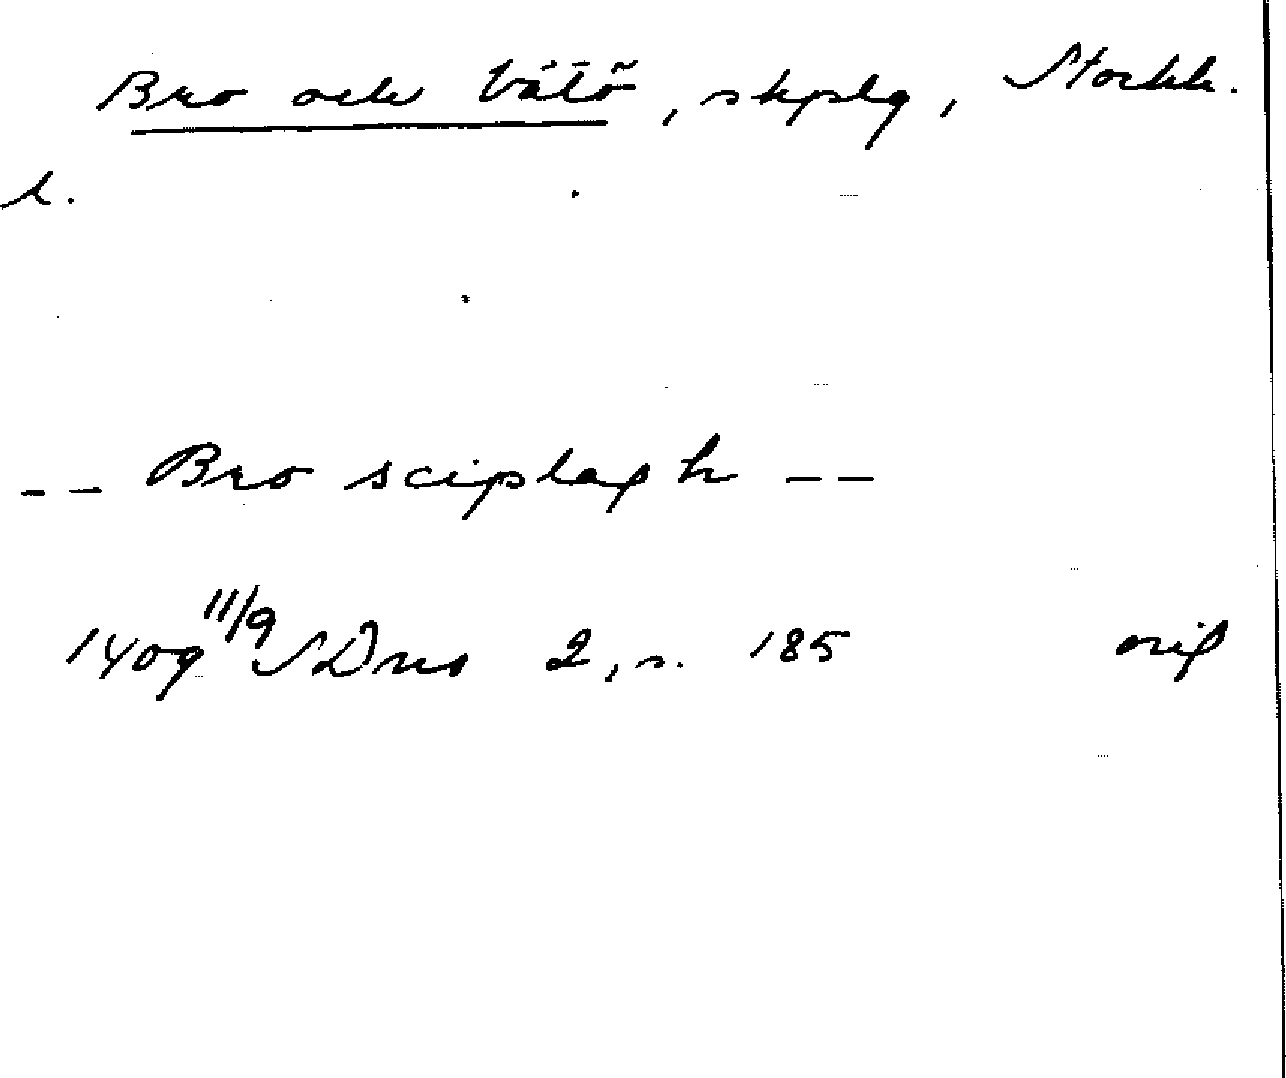 Bro och Vätö, skplg, Stockh.
l.
-- Bro sciplagh --
1409 11/9 SDns 2, s. 185 orig